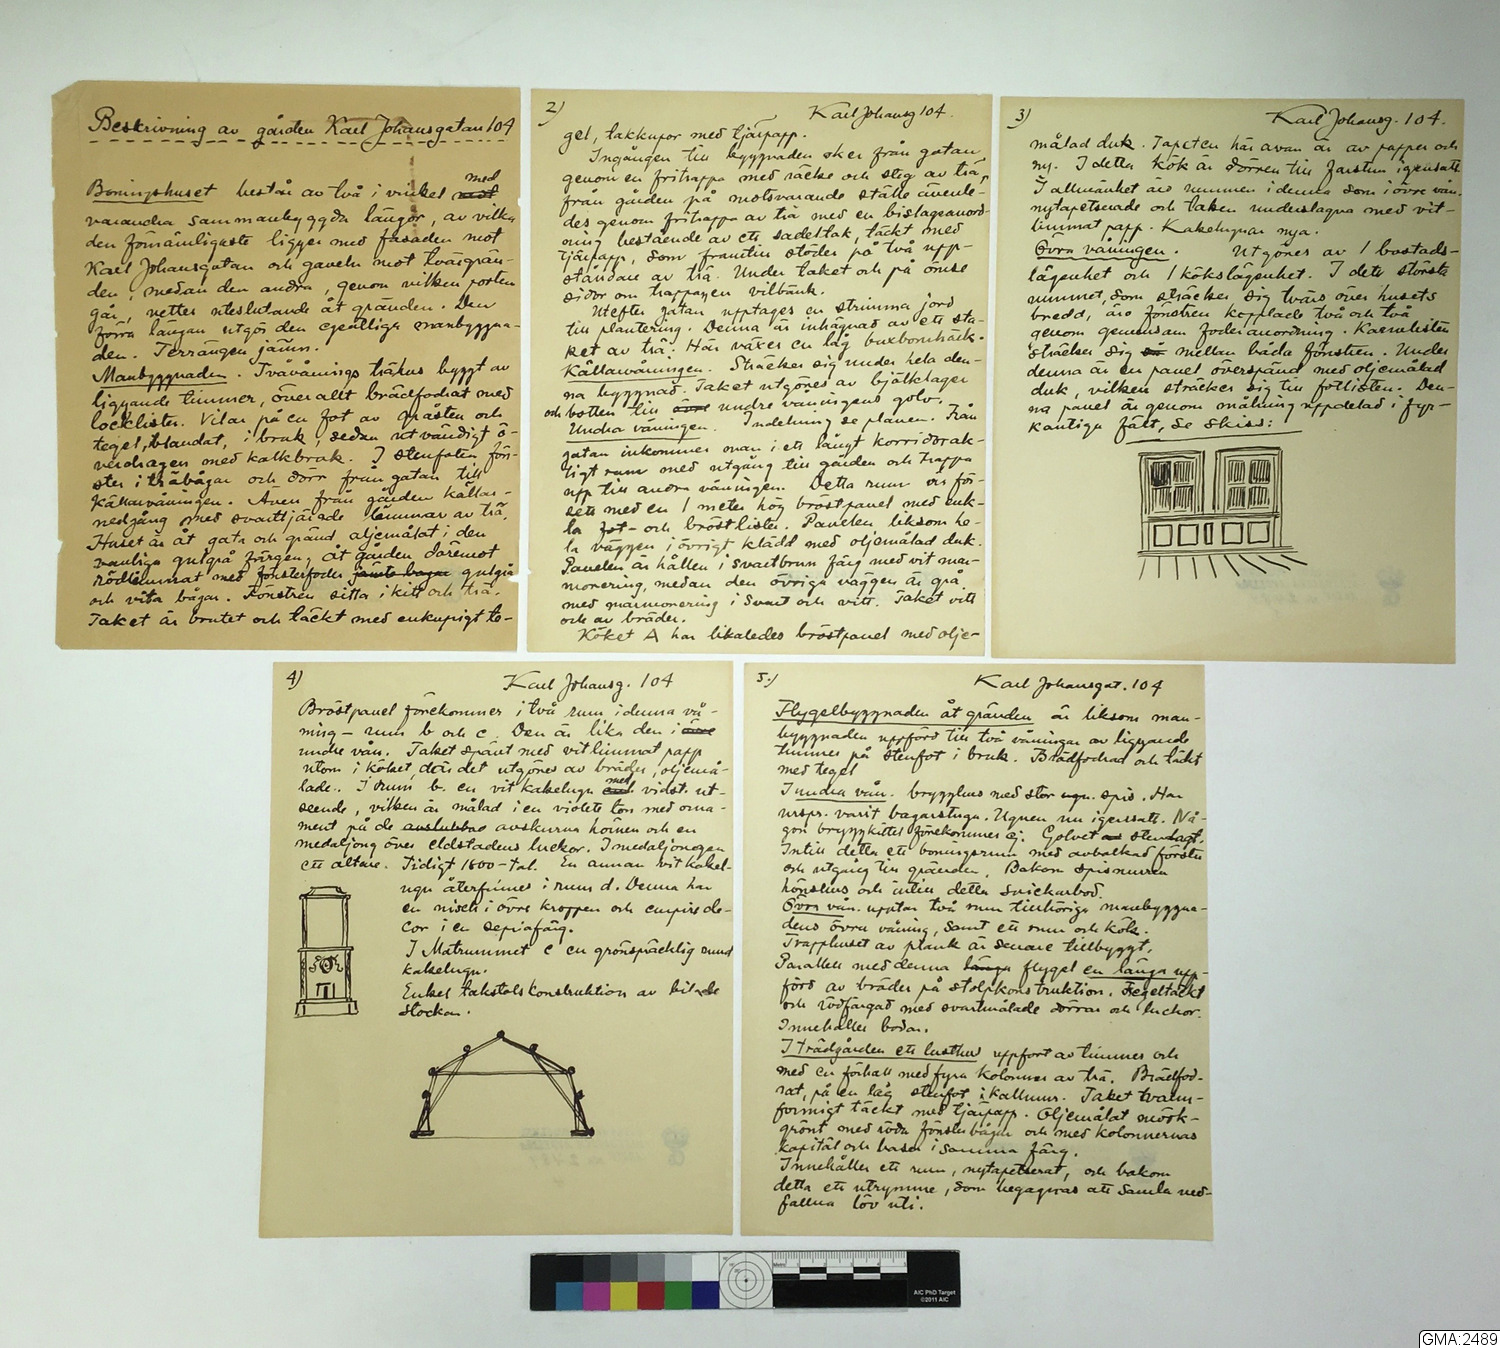 Beskrivning av gården Karl Johansgatan 104
Boningshuset består av två i vinkel med
varandra sammanbyggda längor, av vilka
den förnämligaste ligger med fasaden mot
Karl Johansgatan och gaveln mot tvärgrän-
den, medan den andra, genom vilken porten
går, vetter uteslutande åt gränden. Den
förra längan utgör den egentliga manbyggna-
den. Terrängen jämn.
Manbyggnaden. Tvåvånings trähus byggt av
liggande timmer, överallt brädfodrat med
locklister. Vilar på en fot av gråsten och
tegel, blandat, i bruk, sedan utvändigt ö-
verdragen med kalkbruk. I stenfoten föns-
ter i träbågar och dörr från gatan till
källarvåningen. Även från gården källar-
nedgång med svarttjärade lämmar av trä.
Huset är åt gata och gränd oljemålat i den
vanliga gulgrå färgen, åt gården däremot
rödlimmat med fönsterfoder jämte bågar gulgrå
och vita bågar. Fönstren sitta i kitt och trä.
Taket är brutet och täckt med enkupigt te-
2) Karl Johansg 104.
gel, takkupor med tjärpapp.
Ingången till byggnaden sker från gatan
genom en fritrappa med räcke och steg av trä,
från gården på motsvarande ställe även le-
des genom fritrappa av trä med en bislagsanord-
ning bestående av ett sadeltak, täckt med
tjärpapp, som framtill stöder på två upp-
ståndare av trä. Under taket och på ömse
sidor om trappan vilbänk.
Utefter gatan upptages en strimma jord
till plantering. Denna är inhägnad av ett sta-
ket av trä. Här växer en låg buxbomhäck.
Källarvåningen. Sträcker sig under hela den-
na byggnad. Taket utgöres av bjälklager
och botten till övre undre våningens golv.
Undra våningen. Indelning se planen. Från
gatan inkommer man i ett långt korridorak-
tigt rum med utgång till gården och trappa
upp till andra våningen. Detta rum är för-
sett med en 1 meter hög bröstpanel med enk-
la fot- och bröstlister. Panelen liksom he-
la väggen i övrigt klädd med oljemålad duk.
Panelen är hållen i svartbrun färg med vit mar-
morering, medan den övriga väggen är grå
med marmorering i svart och vitt. Taket vitt
och av bräder.
Köket A har likaledes bröstpanel med olje-
3) Karl Johansg. 104.
målad duk. Tapeten här ovan är av papper och
ny. I detta kök är dörren till farstun igensatt.
I allmänhet äro rummen i denna som i övre vån.
nytapetserade och taken underslagna med vit-
limmat papp. Kakelugnar nya.
Övra våningen. Utgöres av 1 bostads-
lägenhet och 1 kökslägenhet. I dets största
rummet, som sträcker sig tvärs över husets
bredd, äro fönstren kopplade två och två
genom gemensam foderanordning. Karmlisten
sträcker sig mellan båda fönstren. Under
denna är en panel överspänd med oljemålad
duk, vilken sträcker sig till fotlisten. Den-
na panel är genom målning uppdelad i fyr-
kantiga fält, se skiss:
4) Karl Johansg. 104
Bröstpanel förekommer i två rum i denna vå-
ning – rum b och c. Den är lika den i övre
undre vån. Taket spänt med vitlimmat papp
utom i köket, där det utgöres av bräder, oljemå-
lade. I rum b. en vit kakelugn med vidst. ut-
seende, vilken är målad i en violett ton med orna-
ment på de avskurna hörnen och en
medaljong över eldstadens luckor. I medaljongen
ett altare. Tidigt 1800-tal. En annan vit kakel-
ugn återfinnes i rum d. Denna har
en nisch i övre kroppen och empirede-
cor i en sepiafärg.
I Matrummet c en grönspräcklig rund
kakelugn.
Enkel takstolskonstruktion av bilade
stockar.
5.) Karl Johansgat. 104
Flygelbyggnaden åt gränden är liksom man-
byggnaden uppförd till två våningar av liggande
timmer på stenfot i bruk. Brädfodrad och täckt
med tegel
I undra vån. brygghus med stor ugn. spis. Har
urspr. varit bagarstuga. Ugnen nu igensatt. Nå-
gon bryggkittel förekommer ej. Golvet stenlagt.
Intill detta ett boningsrum med avbalkad förstu
och utgång till gränden. Bakom spismuren
hönshus och intill detta snickarbod.
Övra vån. upptar två rum tillhöriga manbyggna-
dens övra våning, samt ett rum och kök.
Trapphuset av plank är senare tillbyggt.
Parallell med denna länga flygel en länga upp-
förd av bräder på stolpkonstruktion. Tegeltäckt
och rödfärgad med svartmålade dörrar och luckor.
Innehåller bodar.
I trädgården ett lusthus uppfört av timmer och
med en förhall med fyra kolonner av trä. Brädfod-
rat, på en låg stenfot i kallmur. Taket tvärm-
formigt täckt med tjärpapp. Oljemålat mörk-
grönt med röda fönsterbågar och med kolonnernas
kapitäl och baser i samma färg.
Innehåller ett rum, nytapetserat, och bakom
detta ett utrymme, som begagnas att samla ned-
fallna löv uti.
AIC PhD Target
©2011 AIC
GMA:2489